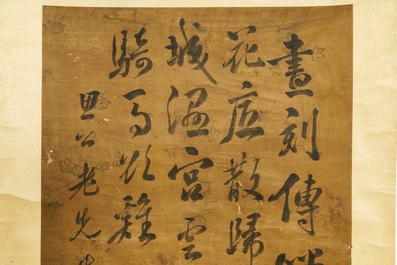 晝刻傳
花底散歸
城濕宮雲
騎馬欲雞
思公老先